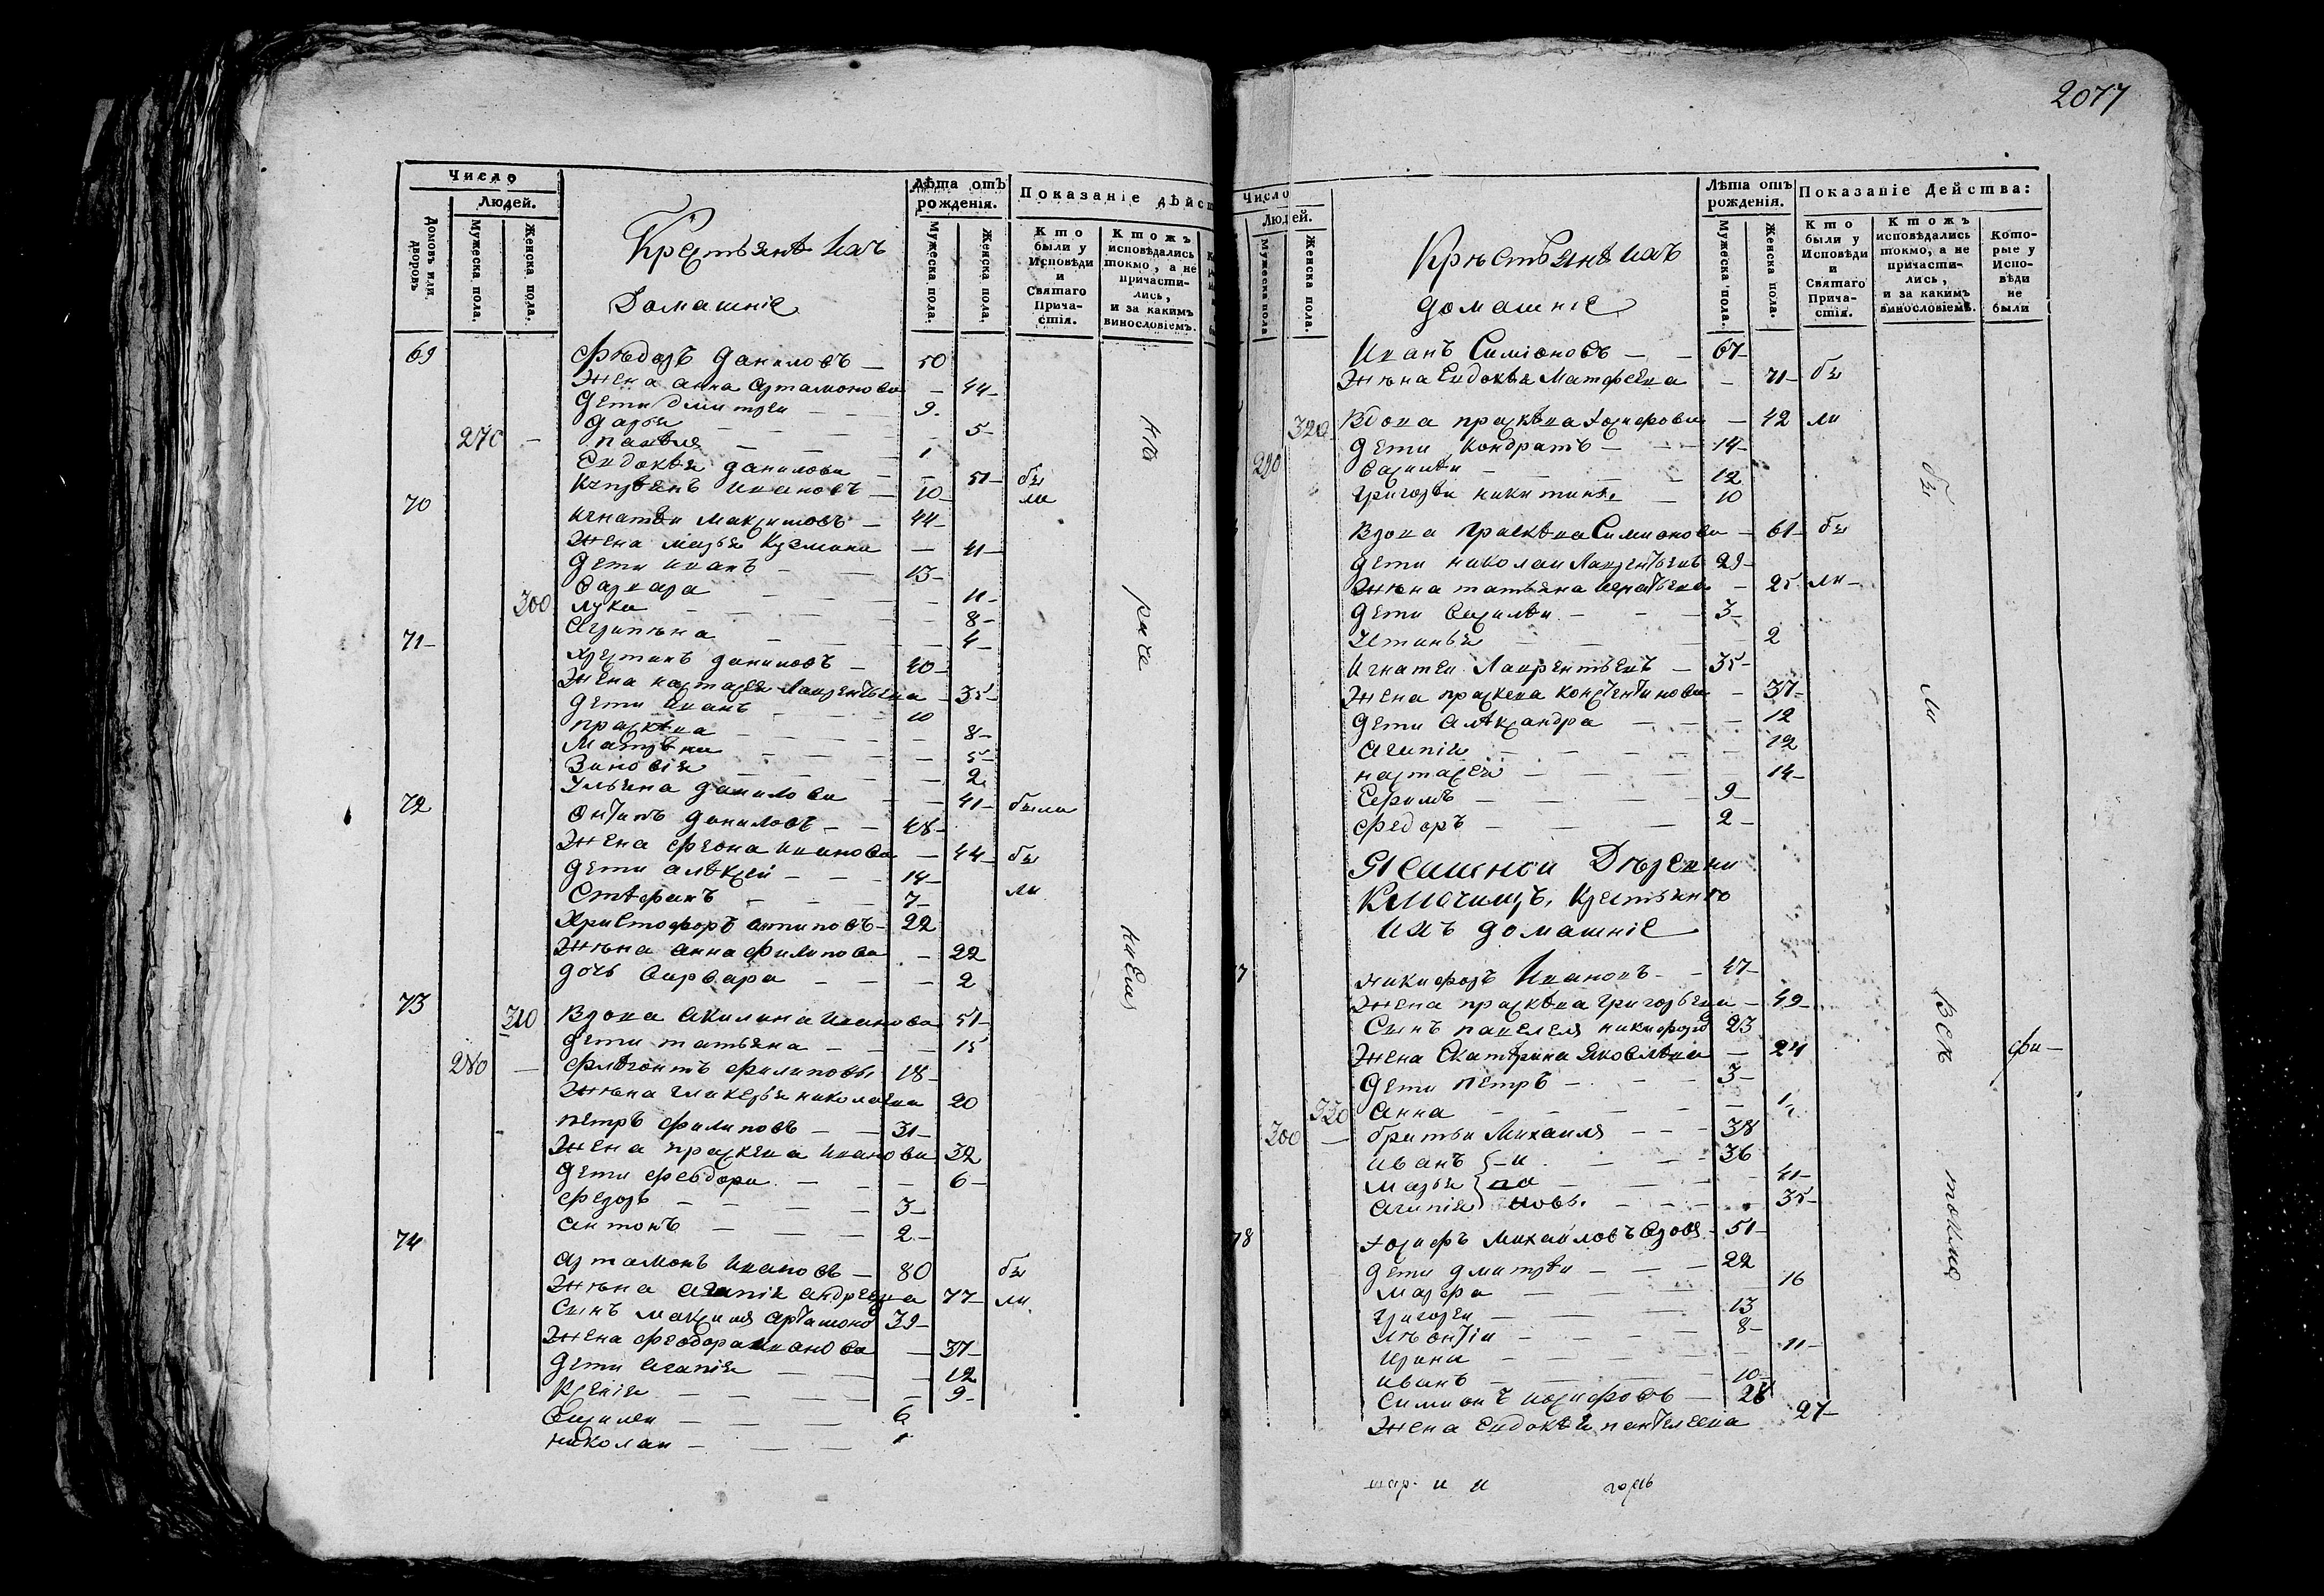 2077
Число
Людей.
Домовъ или дворовъ
Мужеска пола.
Женска пола.
Крестьянѣ ихъ
Домашніе
Лѣта отъ рожденія.
Мужеска пола.
Женска пола.
Показаніе дѣйст
Кто были у Исповѣди и Святаго Причастія.
Ктожъ исповѣдались токмо, а не причастились, и за какимъ винословіемъ.
69 Ѳѣдоръ Даниловъ — 50
Жена Анна Артамонова — 44
Дети Дмитреи — 9
Дарья — 5
270 — Павѣлъ — 1
Евдокѣя Данилова — 51 бы
Кипрѣянъ Ивановъ — 10 ли
70 Игнатѣи Максимовъ — 44
Жена Марья Кузмина — 41
Дети Иванъ — 13
Варвара — 11
300 Лука — 8
Агрипѣна — 4
71 Хрестинъ Даниловъ — 40
Жена Настасея Лаврентьева — 35
Дети Иванъ — 10
Праскѣва — 8
Матрѣна — 5
Зиновія — 2
Ульяна Данилова — 41 были
72 Онтипъ Даниловъ — 48
Жена Феона Иванова — 44 бы
Дети Алѣксей — 14
Стѣфанъ — 7 ли
Христофоръ Антиповъ 22
Жѣна Анна Филипова — 22
Дочь Варвара — 2
73 310 Вдова Акилина Иванова 51
Дети Татьяна — 15
280 — Флѣгонтъ Филиповъ 18
Жѣна Гликерья Николаева 20
Пѣтръ Филиповъ — 31
Жена Праскева Иванова 32
Дети Феѳдора — 6
Федоръ — 3
Антонъ — 2
74 Артамонъ Ивановъ — 80 бы
Жѣна Агапія Андреева 77 ли
Сынъ Максимъ Артамоно 39
Жена Феодора Иванова — 37
Дети Агапія — 12
Ксенія — 9
Василеи — 6
Николаи — 1
Число
Людей.
Мужеска пола
Женска пола.
Крѣстьянѣ ихъ
домашніе
Лѣта отъ рожденія.
Мужеска пола.
Женска пола.
Показаніе Действа:
Кто были у Исповѣди и Святаго Причастія.
Ктожъ исповѣдались токмо, а не причастились, и за какимъ винословіемъ.
Которые у Исповѣди не были
Иванъ Симіоновъ — 67
Жѣна Евдокѣя Матфеева — 71 бы
320 Вдова Праскѣва Іосифова — 42 ли
Дети Кондратъ — 14
290 Василѣи — 12
Григорѣи Никитины — 10
Вдова Праскѣва Симионова — 61 бы
Дети Николаи Лаврентьевъ 29
Жѣна Татьяна Игнатьева — 25 ли
Дети Василѣи — 3
Устинья — 2
Игнатеи Лаврентьевъ — 35
Жена Праскева Констентинова — 37
Дети Алѣксандра — 12
Агапія — 12
Настасея — 14
Ефимъ — 9
Федоръ — 2
Дѣревни
Крестьянѣ
ихъ домашніе
Никифоръ Ивановъ — 47
Жена Праскѣва Григорьева — 49
Сынъ Панелея Никифоро 23
Жена Екатѣрина Яковлѣва — 24
Дети Пѣтръ — 3
330 Анна — 1
300 — Братьи Михаила — 38
Иванъ — 36
Марья — 41
Агапія — 35
78 Іосифъ Михаиловъ вдовъ 51
Дети Дмитрѣи — 22
Марфа — 16
Григореи — 13
Лѣонтіи — 8
Ирина — 11
Иванъ — 10
Симионъ Иосифовъ — 28
Жена Евдокѣя Пантелеева 27